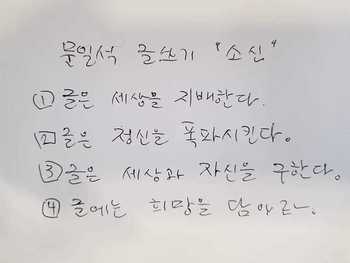 문일석 글쓰기 "소신"
① 글은 세상을 지배한다.
② 글은 정신을 폭파시킨다.
③ 글은 세상과 자신을 구한다.
④ 글에는 희망을 담아라.